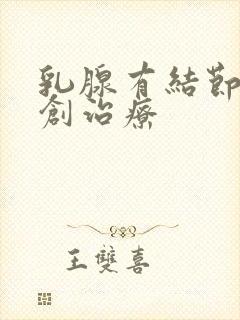 乳腺有結節
創治療
王雙喜